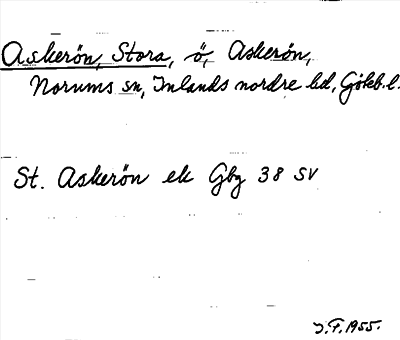 Askerön, Stora, ö, Askerön,
Norums sn, Inlands nordre hd, Göteb. l.
St. Askerön ek Gbg 38 SV
J.F. 1955.